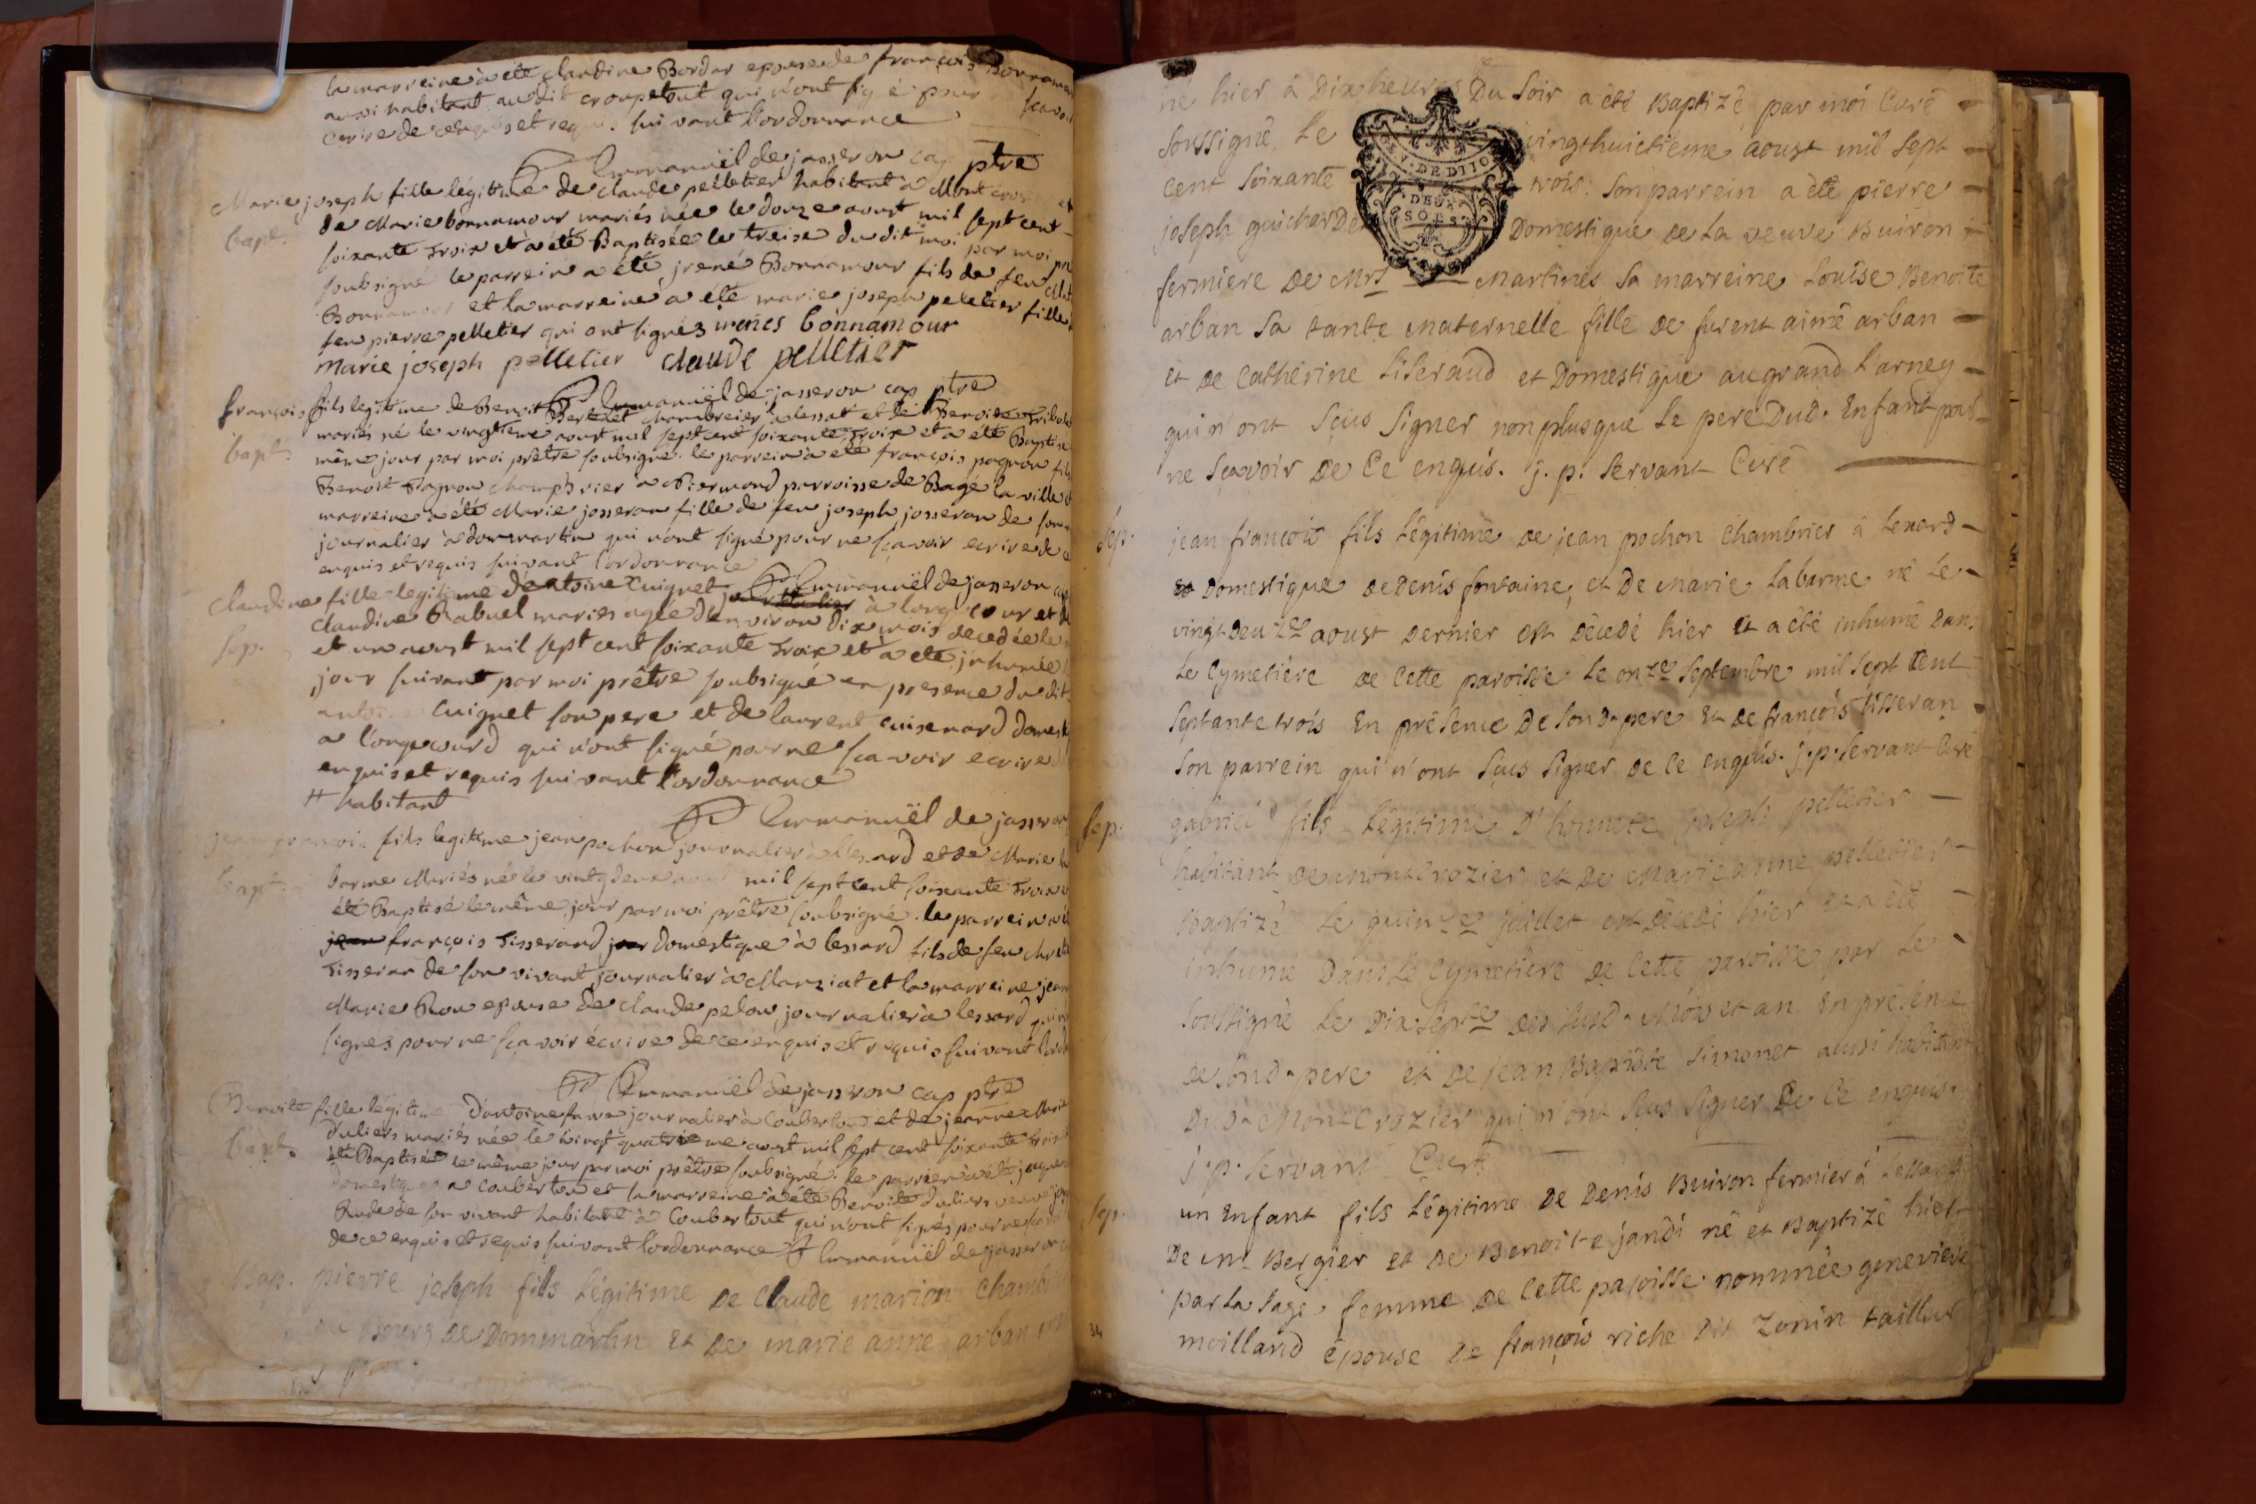 la marreine a été claudine Bordar epouse de françois Bonnamour
aussi habitant audit croupetout qui n'ont signé pour sçavoir
ecrire de ce enquis et requis suivant l'ordonnance
F Emmanuël de jasseron cap ptre
Marie joseph fille légitime de claude pelletier habitant à Mont crosier et
bapt.
de Marie bonnamour mariés née le douze aoust mil sept cent
soixante trois et a été Baptisée le treise du dit moi par moi
soubsigné le parrein a été irené Bonnamour fils de feu
Bonnamour et la marreine a été marie joseph peletier fille
feu pierre pelletier qui ont signéz irenés bonnamour
marie joseph pelletier claude pelletier
F Emmanuël de jasseron cap ptre
françois fils legitime de Benoit Bertelet chambreier a lessar et de Benoite
bapt.
mariés né le vingtieme aoust mil sept cent soixante trois et a été Baptisé
même jour par moi prêtre soubsigné. le parrein a été françois pagnon fils
Benoit Pagnon parroisse de Bagé la ville
marreine a été Marie josseran fille de feu joseph josseran de son
journalier à dommartin qui n'ont signé pour ne sçavoir ecrire de
enquis et requis suivant l'ordonnance
F Emmanuël de jasseron
claudine fille legitime d'antoine cuignet journalier à longecour et de
sep.
claudine Rabuel mariés agée d'environ dix mois decedée le
et un aoust mil sept cent soixante trois et a été inhumée
jour suivant par moi prêtre soubsigné en presence du dit
antoine cuignet son pere et de laurent cuisenard domest
a longecourd qui n'ont signé pour ne sçavoir ecrire
enquis et requis suivant l'ordonnance
# habitant
F Emmanuël de jasseron
jean françois fils legitime jean pochon journalier à lessard et de Marie la
bapt.
barme Mariés né le vintg deux aout mil sept cent soixante trois
été Baptisé le même jour par moi prêtre soubsigné. le parrein a été
jean françois Tisserand jour domestique à lessard fils de feu
Tisseran de son vivant journalier à Marziat et la marreine jean
Marie Rou epouse de claude pelou journalier à lessard qui
signés pour ne sçavoir écrire de ce enquis et requis suivant l'ord
F Emmanuël de jasseron cap ptre
Benoite fille légitime d'antoine journalier à Coubertout et de jeanne Marie
bapt.
dulier mariés née le vingt quatrieme aoust mil sept cent soixante trois
été Baptisée le même jour par moi prêtre soubsigné. le parrien a été jaques
domestique a coubertou et la marreine a été Benoite duliers veuve
Rude de son vivant habitant à Coubertout qui n'ont signés pour ne sça
de ce enquis et requis suivant l'ordonnance F Emmanuël de jasseron
Bap. pierre joseph fils Légitime de Claude marion Chamb
du Bourg de Dommartin et de marie anne arban
ne hier à Dix heures Du Soir a été Baptizé par moi Curé
Soussigné, Le vingthuictieme aoust mil Sept
Cent Soixante trois. Son parrein a été pierre
joseph guichardet Domestique de La veuve Buiron
DE DIION
DEUX
SOLS
fermiere de Mrs Martines Sa marreine Louise Benoite
arban Sa tante maternelle fille de furent aimé arban
et de Catherine Liberaud et Domestique au grand Larney
qui n'ont Sçus Signer nonplusque Le pere Dud. Enfant pour
ne Sçavoir De Ce enquis. j. p. Servant Curé
Sep. jean françois fils Légitime de jean pochon Chambrier à Lexard
et Domestique de Denis fontaine, et De Marie Labarme né Le
vingt deuzes aoust Dernier est Décedé hier et a été inhumé Dans
Le Cymetiére de Cette paroisse Le onzes Septembre mil Sept Cent
Septante trois En présence De Sond. pere Et de françois Tisseran
Son parrein qui n'ont Sçus Signer De Ce enquis. j. p. Servant Curé
Sep. gabriel fils Légitime D'honnete joseph pelletier
habitant de montcrozier et De Marie anne pelletier
Baptizé Le quinzes juillet est Décedé hier et a été
inhumé Dans Le Cymetiere de Cette paroisse par Le
Soussigné Le Dix Septe des Susd. Mois et an En présence
de Sond. pere et de jean Baptiste Simonet aussi habitant
Dud. Mont Crozier qui n'ont Sçus Signer De Ce enquis.
j. p. Servant Curé
Sep. un Enfant fils Légitime De Denis Buiron fermier à Lessard
De Mr Bergier et de Benoite jandi né et Baptizé hier
par La Sage femme de Cette paroisse nommée genevieve
moilland épouse de françois riche Dit Zonin tailleur